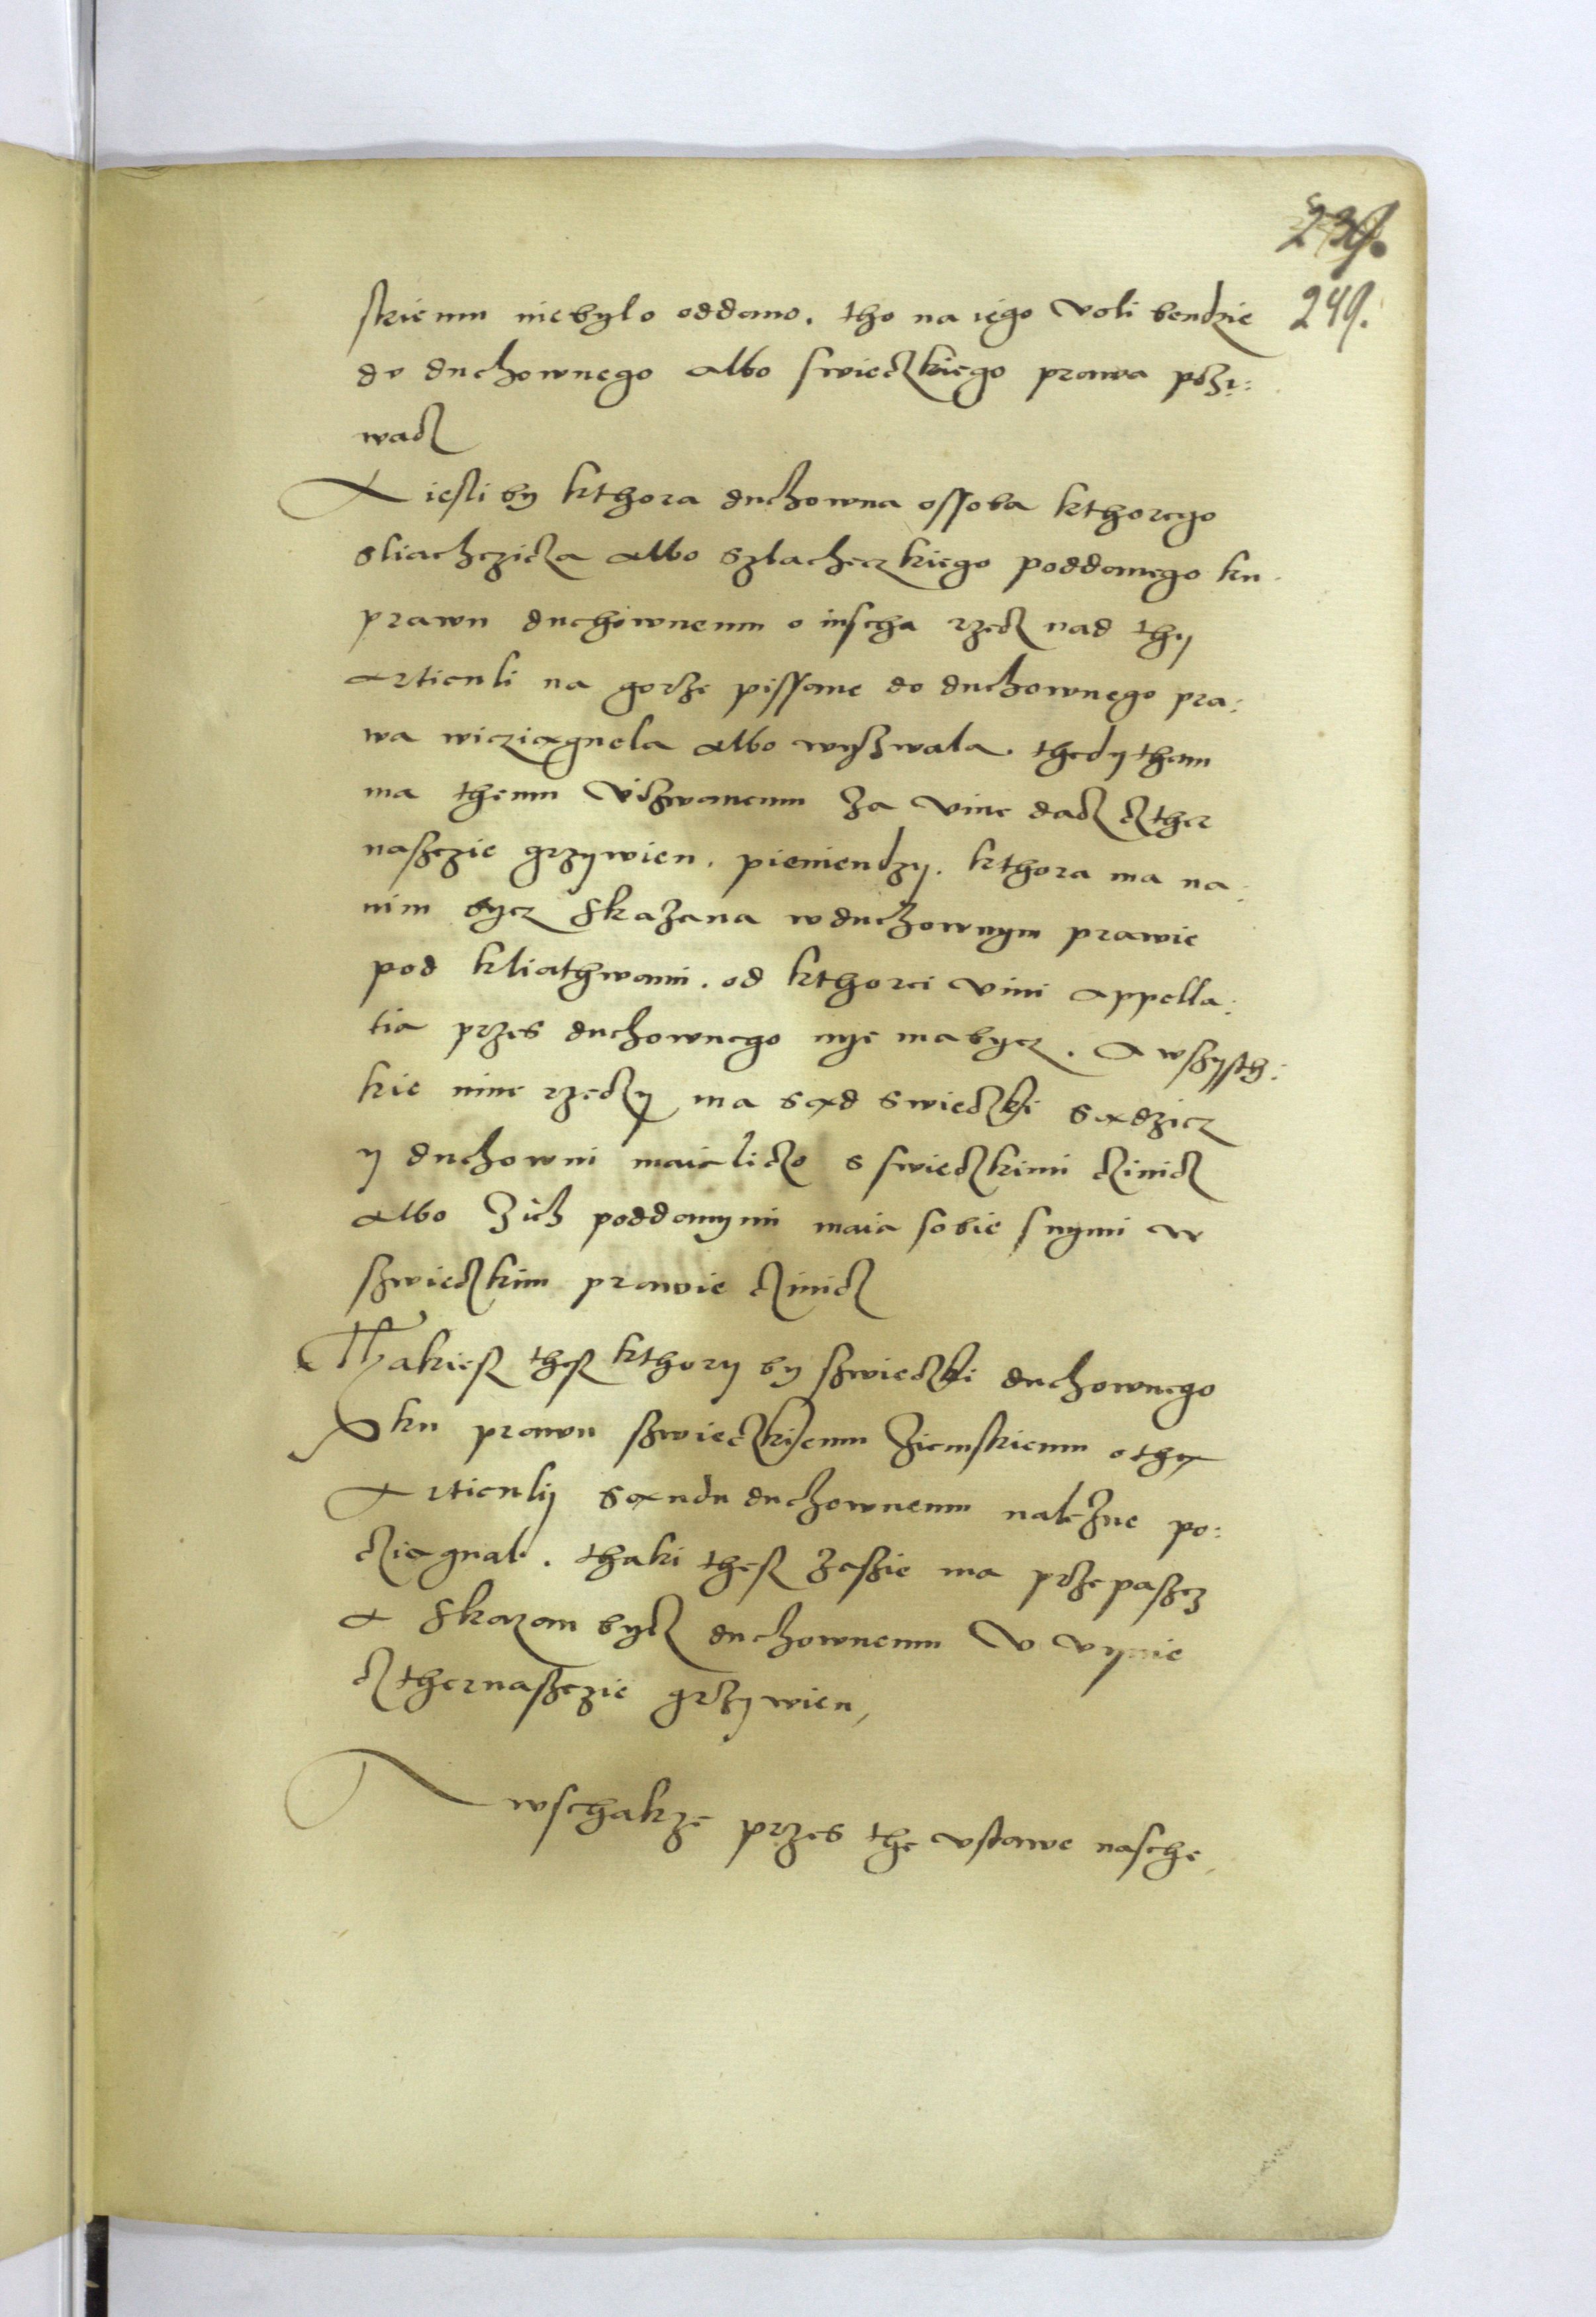 249.
skiemu niebylo oddano. tho na iego voli bendzie
do duchownego albo swieczkiego prawa pozi:
wacz
A iesli by kthora duchowna ossoba kthorego
sliachczicza albo szlacheczkiego poddanego ku
prawu duchownemu o inscha rzecz nad thy
articuli na gorze pissane do duchownego pra:
wa wicziągnela albo wyzwala. thedy tham
ma themu vizwanemu za vine dacz czther
naszczie grzywien. pieniendzy. kthora ma na
nim bycz skazana w duchownym prawie
pod kliathwami. od kthorei vini appella:
tia przes duchownego nye ma bycz. A wszysth:
kie nine rzeczy ma sąd swieczki sądzicz
y duchowni maia liczo s swieczkimi czinicz
albo z ich poddanymi maia sobie s nymi w
szwieczkim prawie czinicz
Thakiesz thesz kthory by szwieczki duchownego
ku prawu szwieczkiemu ziemskiemu o thy
Articuly sąndu duchownemu nalezne po:
cziągnal. thaki thesz zaszie ma przepaszcz
a skazan bycz duchownemu v vynie
cztheenaszczie grzywien,
A wschakze przes the vstawe nasche